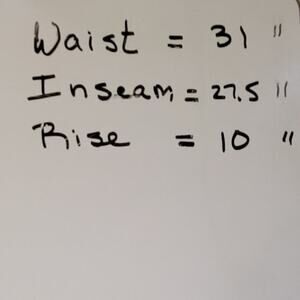 Waist = 31 "
Inseam = 27.5 "
Rise = 10 "